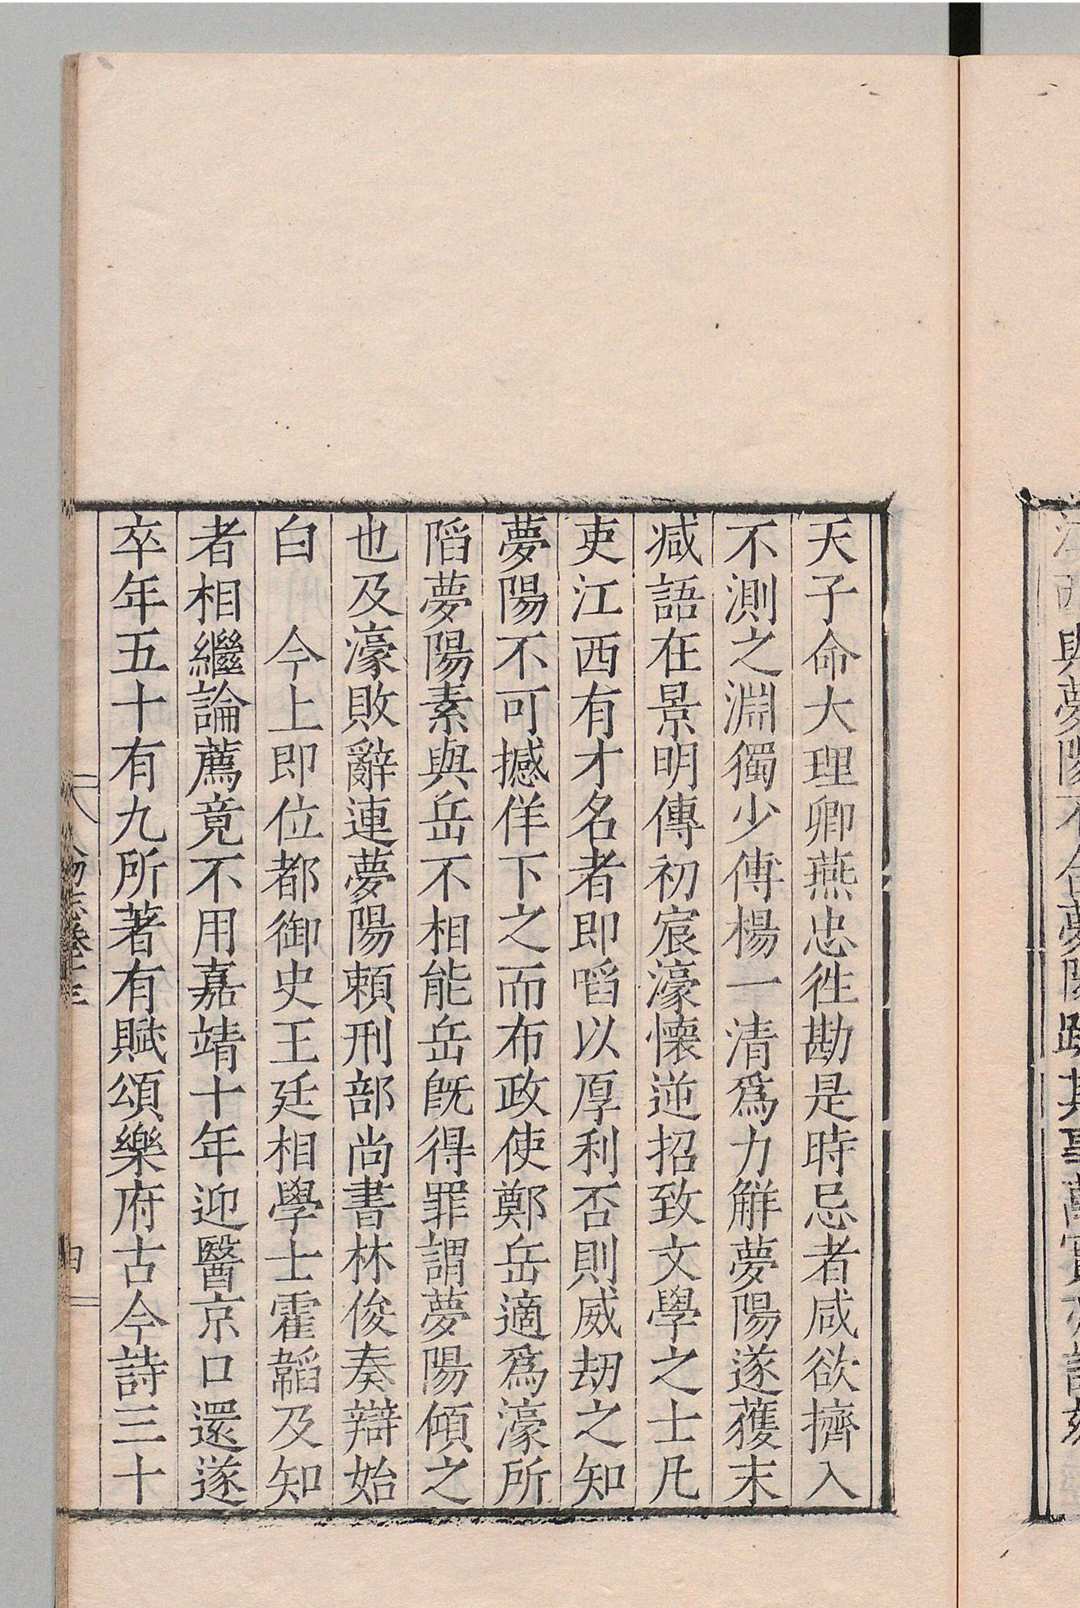 天子命大理卿燕忠徃勘是時忌者咸欲擠入
不測之淵獨少傅楊一清爲力觧夢陽遂獲末
减語在景明傳初宸濠懷逆招致文學之士凡
吏江西有才名者即啗以厚利否則威刼之知
夢陽不可撼佯下之而布政使鄭岳適爲濠所
䧟夢陽素與岳不相能岳旣得罪謂夢陽傾之
也及濠敗辭連夢陽頼刑部尚書林俊奏辯始
白　今上即位都御史王廷相學士霍韜及知
者相繼論薦竟不用嘉靖十年迎醫京口還遂
卒年五十有九所著有賦頌樂府古今詩三十